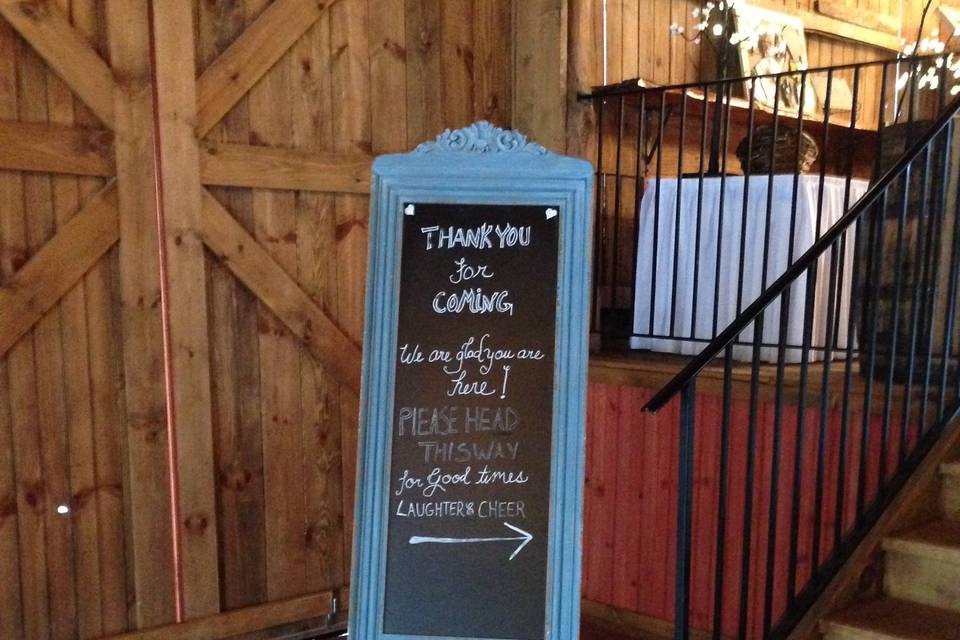 THANK YOU
for
COMING
We are glad you are
here!
PLEASE HEAD
THIS WAY
for Good times
LAUGHTER & CHEER